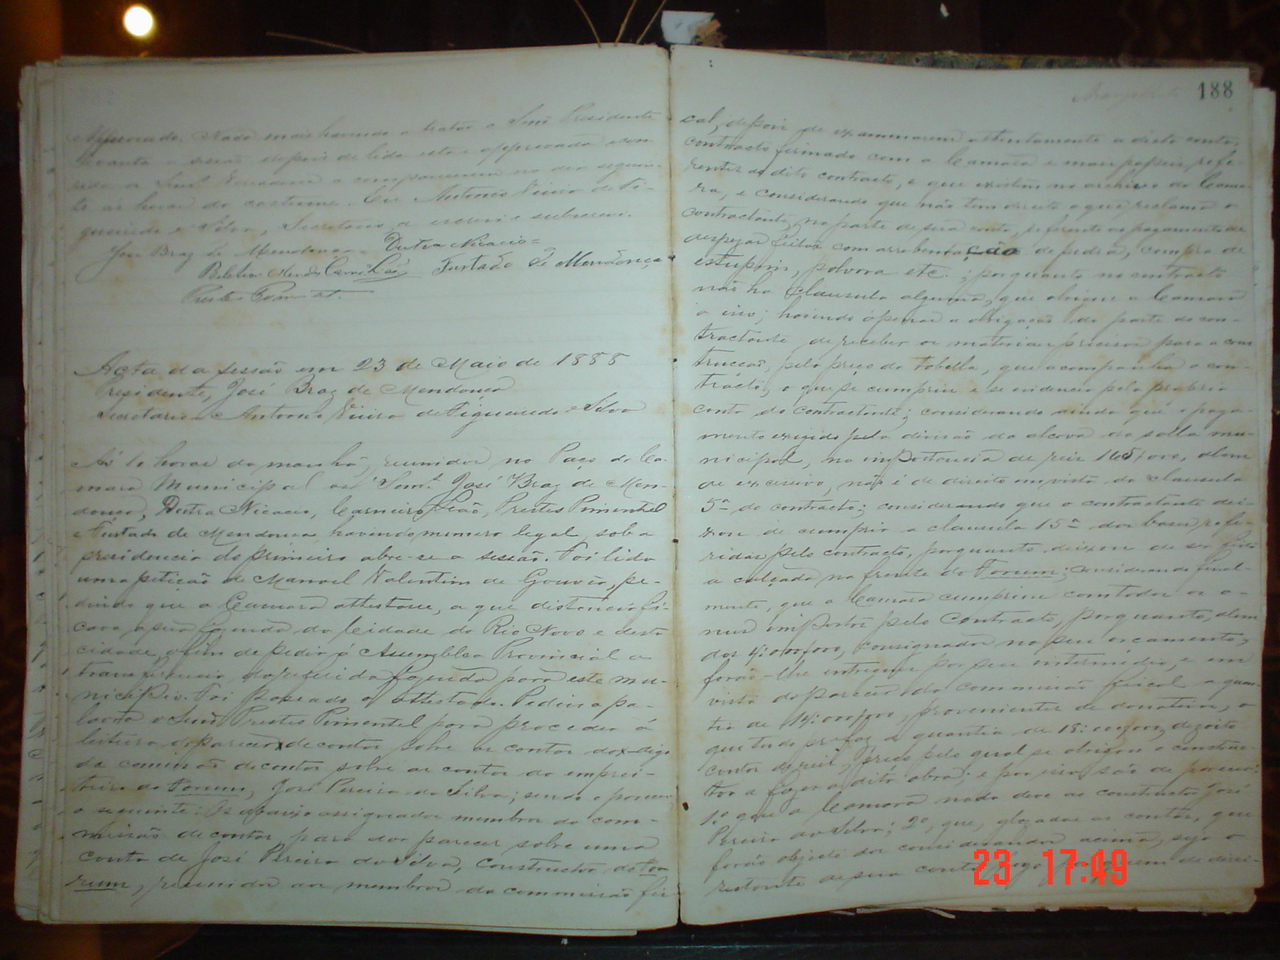 Approvada. Nada mais havendo a tratar o Senr. Presidente
levanta a sessão depois de lida esta e approvada con-
vida os Senrs. Vereadores a comparecerem no dia seguin-
te ás horas do costume. Eu Antonio Vieira de Fi-
gueiredo e Silva, Secretario, a escrevi e subscrevi.
José Braz de Mendonça Dutra Nicacio
Carneiro Leão Furtado de Mendonça
Prestes Pimentel
Acta da sessão em 23 de Maio de 1888
Presidente, José Braz de Mendonça
Secretario Antonio Vieira de Figueiredo e Silva
Ás 10 horas da manhã, reunidos no Paço da Ca-
mara Municipal os Senrs. José Braz de Men-
donça, Dutra Nicacio, Carneiro Leão, Prestes Pimentel
e Furtado de Mendonça, havendo numero legal, sob a
presidencia do primeiro abre-se a sessão. Foi lida
uma petição de Manoel Valentim de Gouvêa, pe-
dindo que a Camara attestasse, a que distancia fi-
cava a sua fazenda da Cidade do Rio Novo e desta
cidade, afim de pedir á Assemblea Provincial a
transferencia da referida fazenda para este mu-
nicipio. Foi passado o attestado. Pedio a pa-
lavra o Senr. Prestes Pimentel para proceder á
leitura do parecer de contas sobre as contas do digo
da comissão de contas sobre as contas do emprei-
teiro do Forum, José Pereira da Silva; sendo o parecer
o seguinte: Os abaixo assignados membros da com-
missão de contas, para dar parecer sobre uma
conta de José Pereira da Silva, constructor do Fo-
rum, reunidos aos membros da commissão fis-
188
cal, depois de examinarem attentamente a dita conta,
contracto firmado com a Camara e mais papeis refe-
rentes ao dito contracto, e que existem no archivo da Cama-
ra, e considerando que não tem direito o que reclama o
contractante, na parte de sua conta, referente ao pagamento de
despezas feitas com arrebentação de pedras, compra de
estupim, polvora etc.; porquanto no contracto
não ha clausula alguma, que obrigue a Camara
a isso; havendo apenas a obrigação da parte do con-
tractante de receber os materiaes precisos para a cons-
trucção, pelo preço da tabella, que acompanha o con-
tracto, o que se cumprio e se evidencia pela propria
conta do contractante; considerando ainda que o paga-
mento exigido pela divisão da alcova da salla mu-
nicipal, na importancia de reis, alem
de excessivo, não é de direito em vista da clausula
5ª do contracto; considerando que o contractante dei-
xou de cumprir a clausula 15ª das bases refe-
ridas pelo contracto, porquanto deixou de ser feita
a calçada na frente do Forum; considerando final-
mente, que a Camara cumprio com todos os o-
nus impostos pelo contracto, porquanto, alem
dos 4:000$000, consignados no seu orçamento,
forão-lhe entregues por seu intermedio, e em
vista do parecer da commissão fiscal a quan-
tia de 14:000$000, provenientes de donativos, o
que tudo prefaz a quantia de 18:000$000, dezoito
contos de reis, preço pelo qual se obrigou o construc-
tor a fazer a dita obra; e por isso são de parecer:
1º que a Camara nada deve ao constructor José
Pereira da Silva; 2º, que, glozadas as contas, que
forão objecto dos considerandos acima, seja o
restante de sua conta de direi-
23 17:49